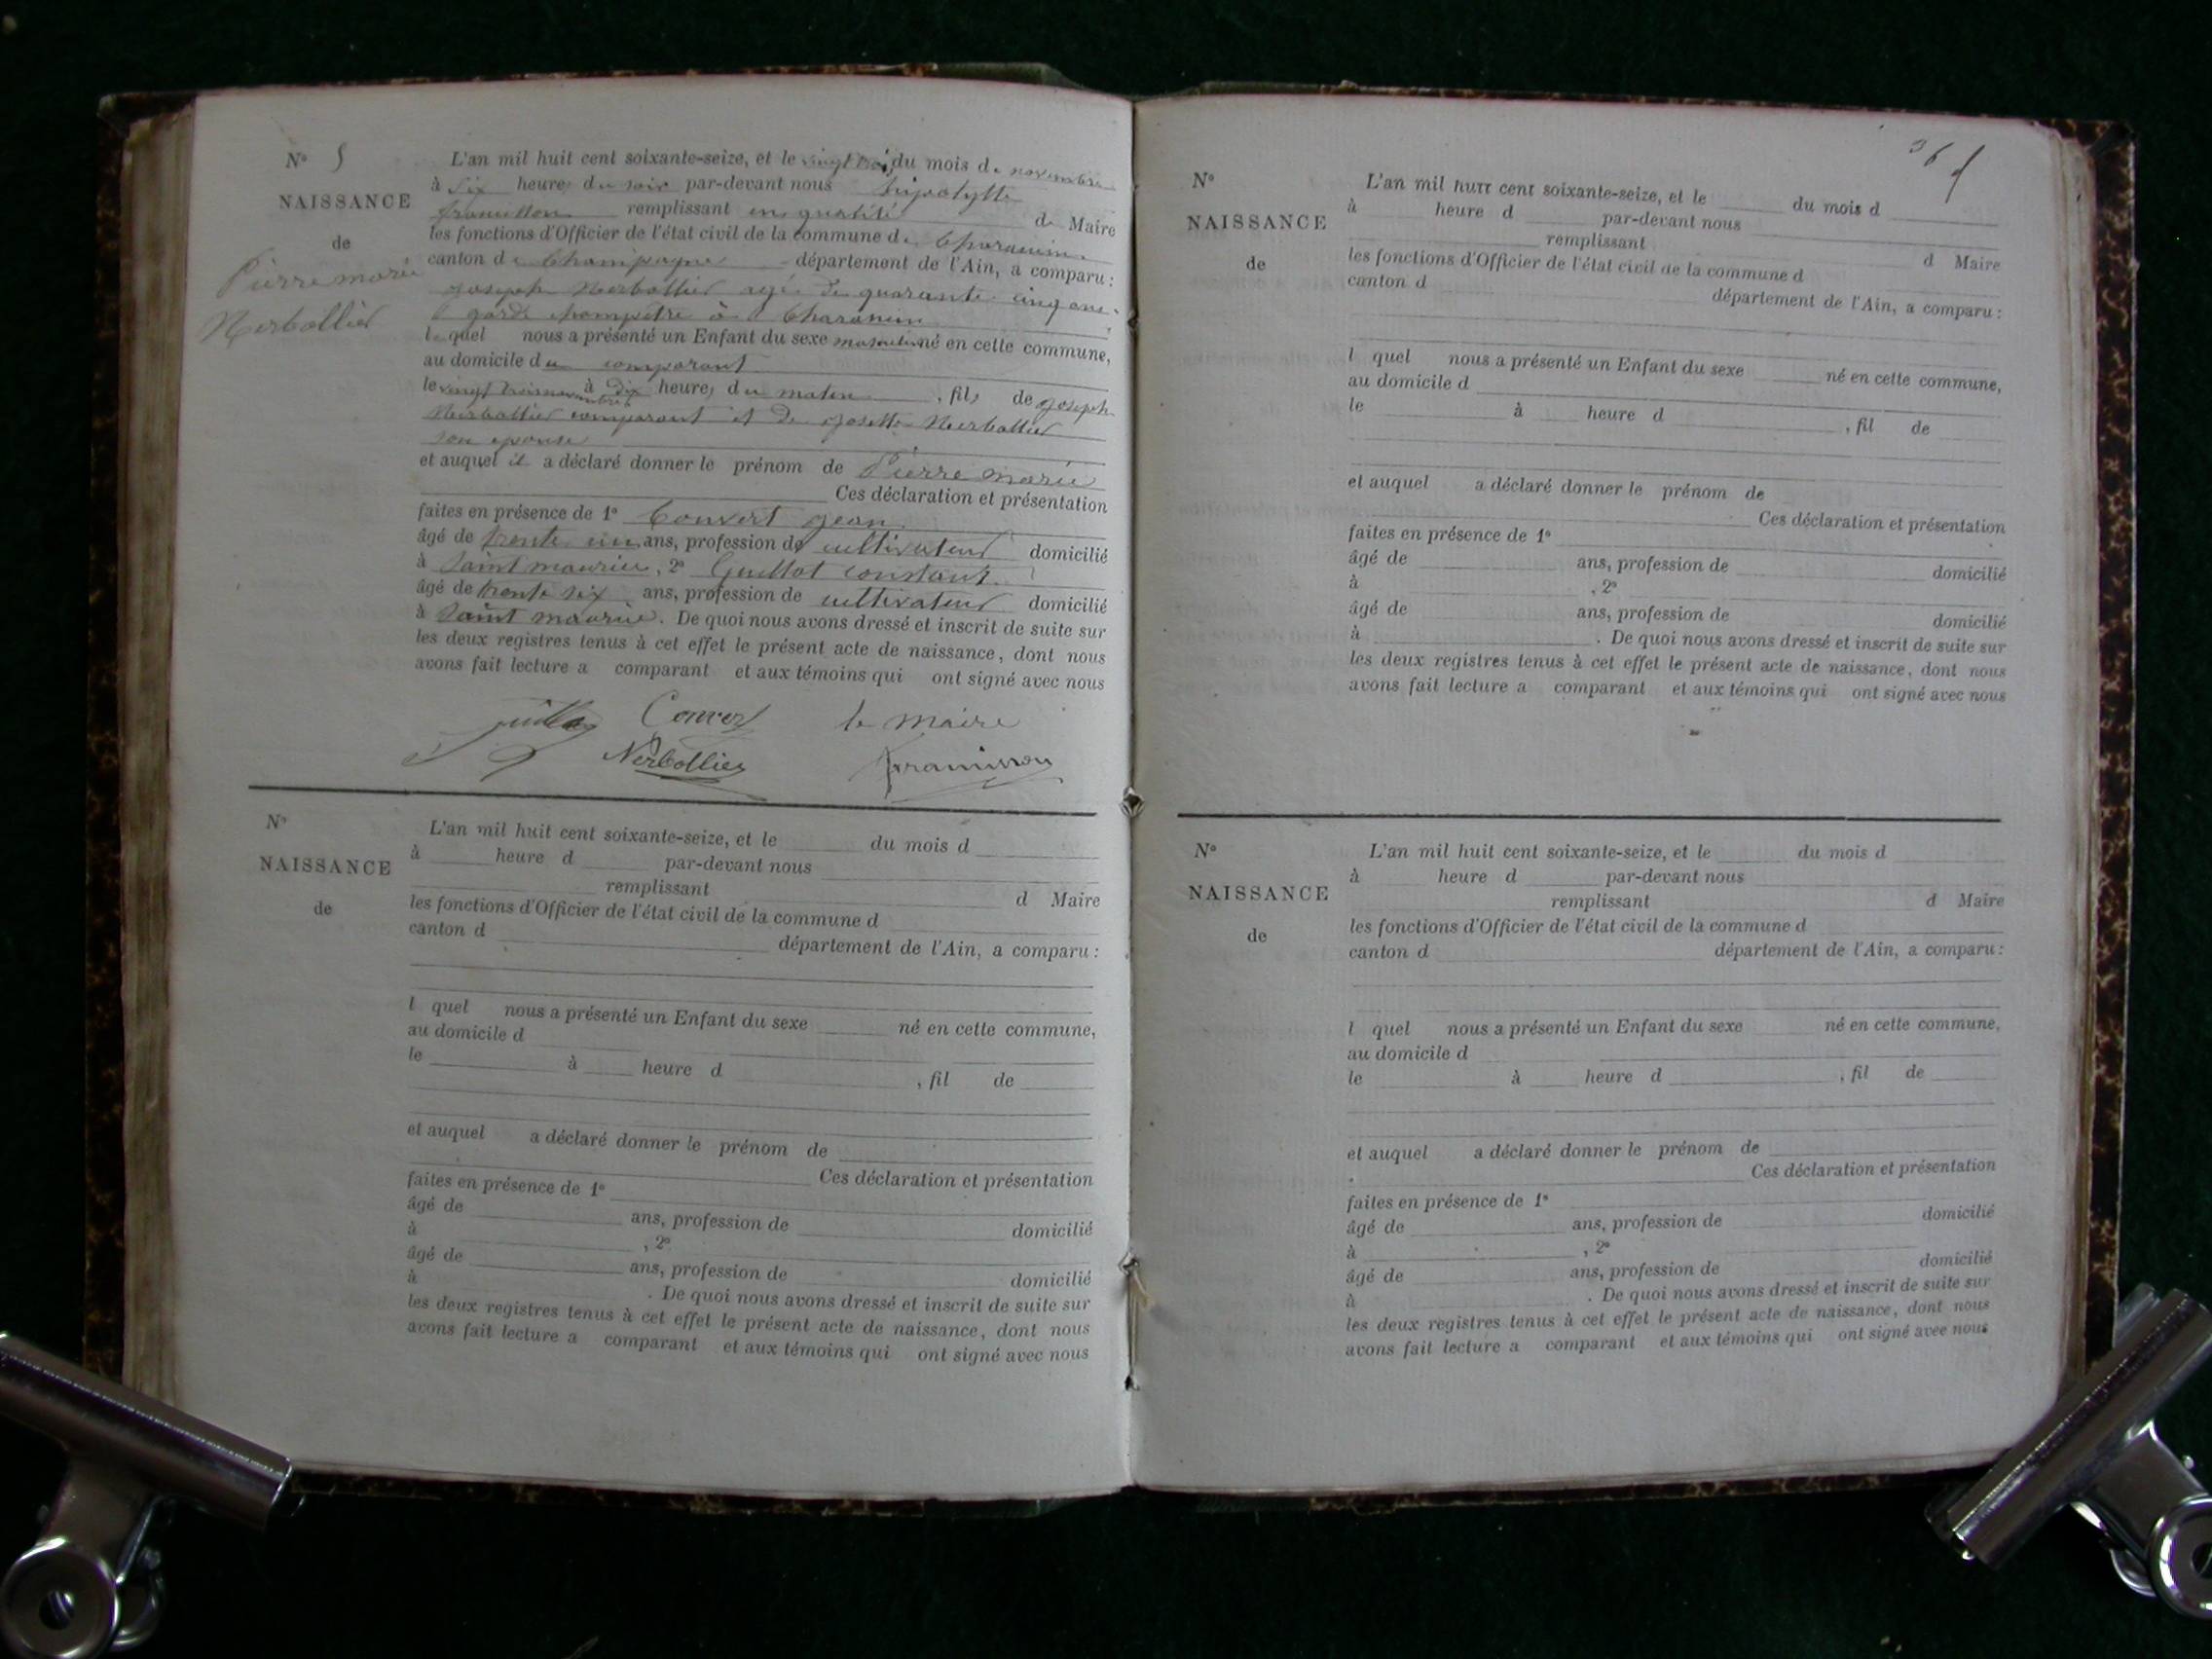 N° 5
NAISSANCE
de
Pierre marie
Nerbollier
L'an mil huit cent soixante-seize, et le vingt trois du mois de novembre
à six heures du soir par-devant nous hipolytte
framillon remplissant en qualité de Maire
les fonctions d'Officier de l'état civil de la commune de
canton de Champagne département de l'Ain, a comparu :
joseph Nerbollier agé de quarante cinq ans,
garde champetre à
lequel nous a présenté un Enfant du sexe masculin né en cette commune,
au domicile du comparant
le vingt trois novembre à dix heures du matin , fils de joseph
Nerbollier comparant et de josette Nerbollier
son epouse
et auquel il a déclaré donner le prénom de Pierre marie
Ces déclaration et présentation
faites en présence de 1° Convert jean
âgé de trente un ans, profession de cultivateur domicilié
à Saint maurice, 2° Guillot constant
âgé de trente six ans, profession de cultivateur domicilié
à Saint maurice. De quoi nous avons dressé et inscrit de suite sur
les deux registres tenus à cet effet le présent acte de naissance, dont nous
avons fait lecture a comparant et aux témoins qui ont signé avec nous
Convert le maire
Nerbollier
N°
NAISSANCE
de
L'an mil huit cent soixante-seize, et le du mois d
à heure d par-devant nous
remplissant d Maire
les fonctions d'Officier de l'état civil de la commune d
canton d département de l'Ain, a comparu :
l quel nous a présenté un Enfant du sexe né en cette commune,
au domicile d
le à heure d , fil de
et auquel a déclaré donner le prénom de
Ces déclaration et présentation
faites en présence de 1°
âgé de ans, profession de domicilié
à , 2°
âgé de ans, profession de domicilié
à . De quoi nous avons dressé et inscrit de suite sur
les deux registres tenus à cet effet le présent acte de naissance, dont nous
avons fait lecture a comparant et aux témoins qui ont signé avec nous
N°
NAISSANCE
de
L'an mil huit cent soixante-seize, et le du mois d
à heure d par-devant nous
remplissant d Maire
les fonctions d'Officier de l'état civil de la commune d
canton d département de l'Ain, a comparu :
l quel nous a présenté un Enfant du sexe né en cette commune,
au domicile d
le à heure d , fil de
et auquel a déclaré donner le prénom de
Ces déclaration et présentation
faites en présence de 1°
âgé de ans, profession de domicilié
à , 2°
âgé de ans, profession de domicilié
à . De quoi nous avons dressé et inscrit de suite sur
les deux registres tenus à cet effet le présent acte de naissance, dont nous
avons fait lecture a comparant et aux témoins qui ont signé avec nous
N°
NAISSANCE
de
L'an mil huit cent soixante-seize, et le du mois d
à heure d par-devant nous
remplissant d Maire
les fonctions d'Officier de l'état civil de la commune d
canton d département de l'Ain, a comparu :
l quel nous a présenté un Enfant du sexe né en cette commune,
au domicile d
le à heure d , fil de
et auquel a déclaré donner le prénom de
Ces déclaration et présentation
faites en présence de 1°
âgé de ans, profession de domicilié
à , 2°
âgé de ans, profession de domicilié
à . De quoi nous avons dressé et inscrit de suite sur
les deux registres tenus à cet effet le présent acte de naissance, dont nous
avons fait lecture a comparant et aux témoins qui ont signé avec nous